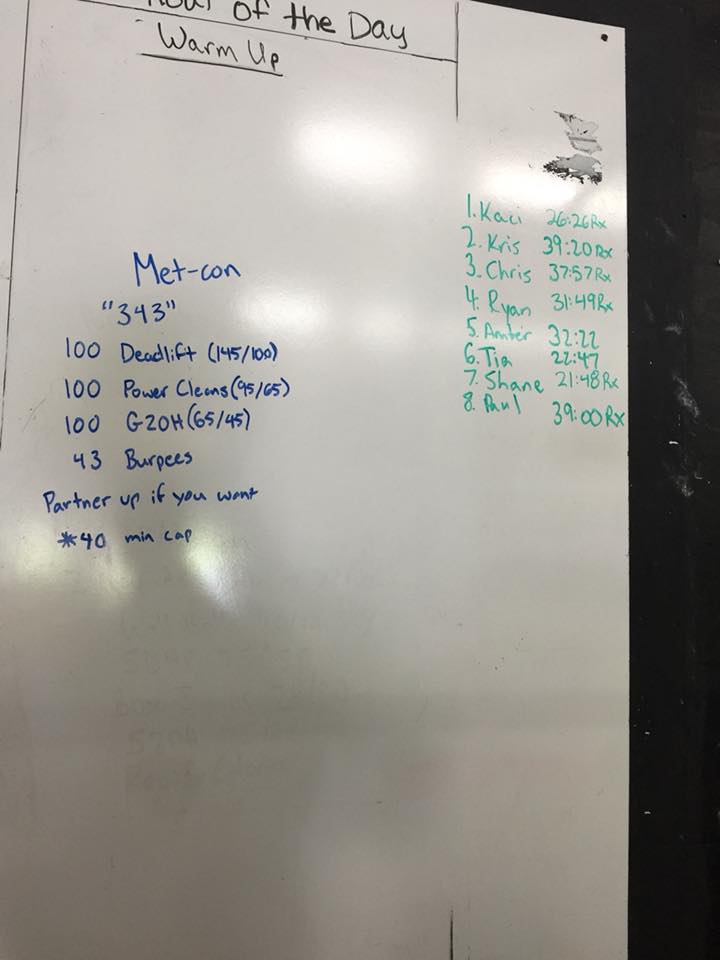 of the Day
Warm Up
Met-con
"343"
100 Deadlift (145/100)
100 Power Cleans (95/65)
100 G2OH (65/45)
43 Burpees
Partner up if you want
*40 min cap
1. Kaci 26:26 Rx
2. Kris 39:20 Rx
3. Chris 37:57 Rx
4. Ryan 31:49 Rx
5. 32:22
6. Tia 22:47
7. Shane 21:48 Rx
8. Paul 39:00 Rx